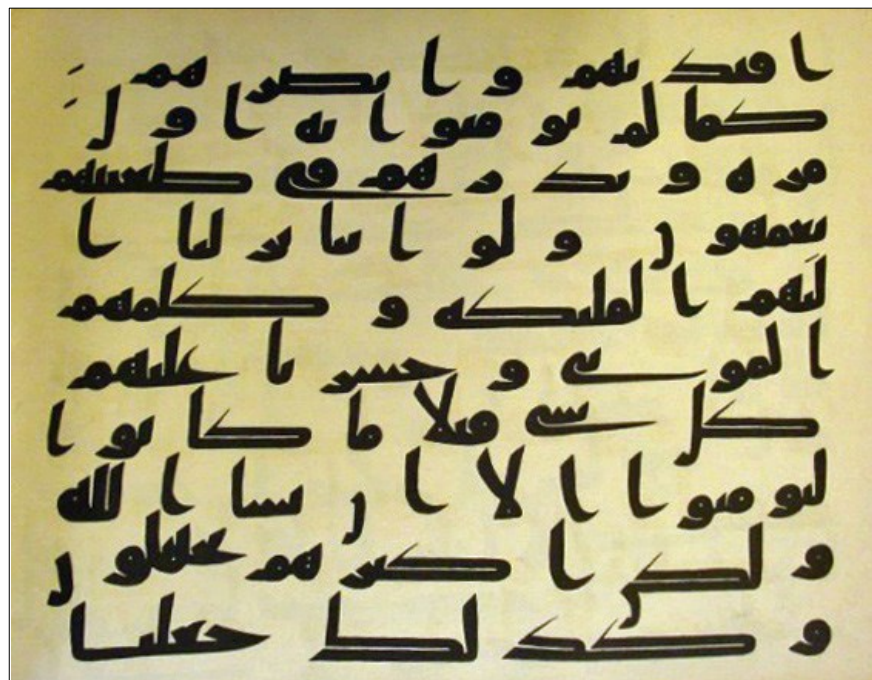 افئدتهم وابصرهم
كما لم يومنوا به اول
مرة ونذرهم في طغينهم
يعمهون ولو اننا نزلنا ا
ليهم الملئكة وكلمهم
الموتى وحشرنا عليهم
كل شي قبلا ما كانوا
ليومنوا الا ان يشا الله
ولكن اكثرهم يجهلون
وكذلك جعلنا